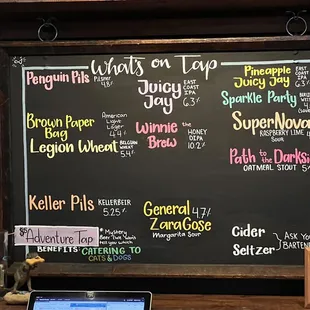 What's on Tap
Penguin Pils Pilsner
4.8%
Juicy
Jay
EAST
COAST
IPA
6.3%
Pineapple
Juicy Jay
EAST
COAST
IPA
6.3
Sparkle Party
Brown Paper
Bag
American
Light
Lager
4.4%
Winnie the
Brew
HONEY
DIPA
10.2%
SuperNova
RASPBERRY LIME
Sour
Legion Wheat
BELGIAN
WHEAT
5.4%
Path to the Darkside
OATMEAL STOUT
Keller Pils
KELLERBIER
5.25%
General 4.7%
ZaraGose
Margarita Sour
Cider
Seltzer
ASK YOUR
BARTENDER
$5
Adventure Tap
*Mystery
Beer
tell you which
BENEFITS: CATERING TO
CATS & DOGS